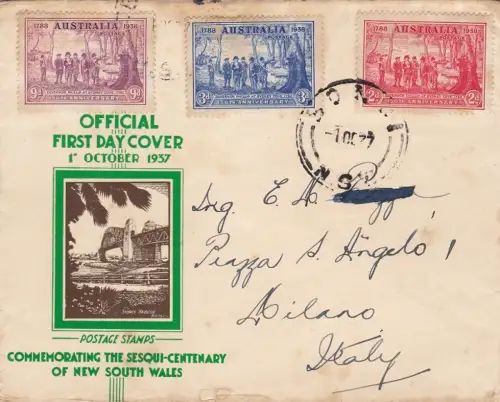 1788 AUSTRALIA 1938
POSTAGE
9D 9D
150TH ANNIVERSARY
1788 AUSTRALIA 1938
POSTAGE
3D 3D
150TH ANNIVERSARY
1788 AUSTRALIA 1938
POSTAGE
2D 2D
150TH ANNIVERSARY
OFFICIAL
FIRST DAY COVER
1ST OCTOBER 1937
SYDNEY HARBOUR
BRIDGE
POSTAGE STAMPS
COMMEMORATING THE SESQUI-CENTENARY
OF NEW SOUTH WALES
BONDI
-1 OC 37
N.S.W
Ing. E. H.
Piazza S. Angelo 1
Milano
Italy